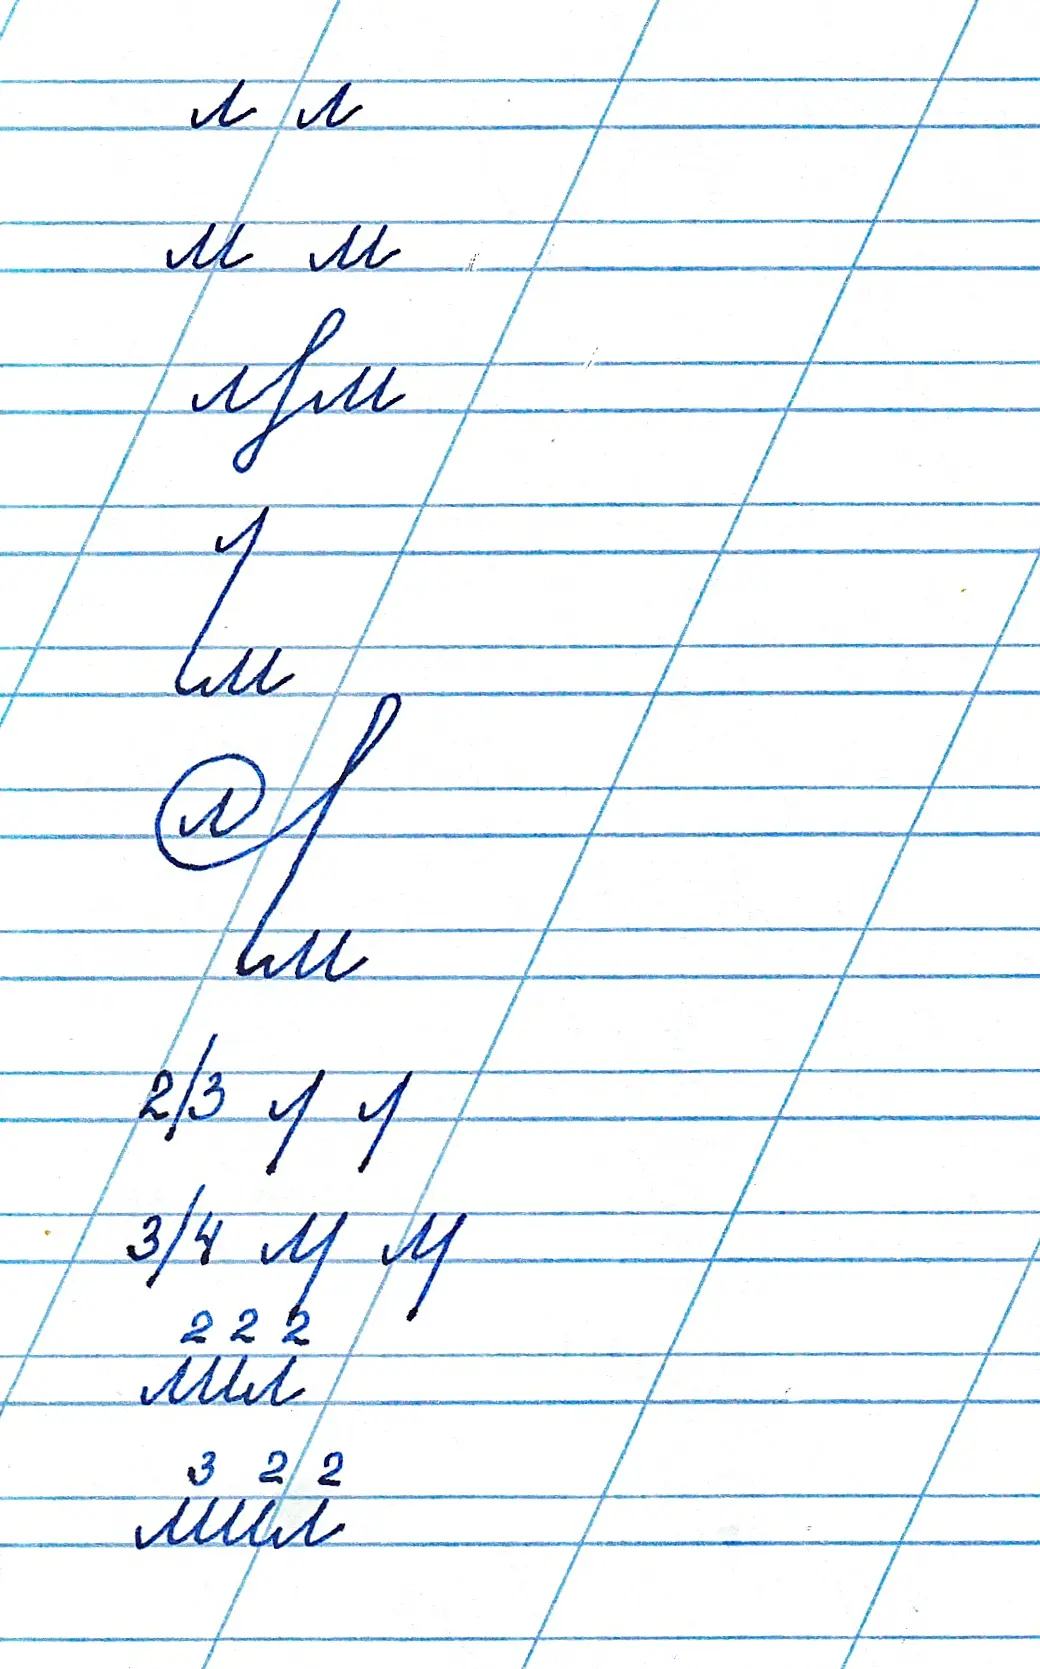 л л
м м
л м
л
м
л
м
2/3 л л
3/4 м м
2 2 2
лил
3 2 2
мил